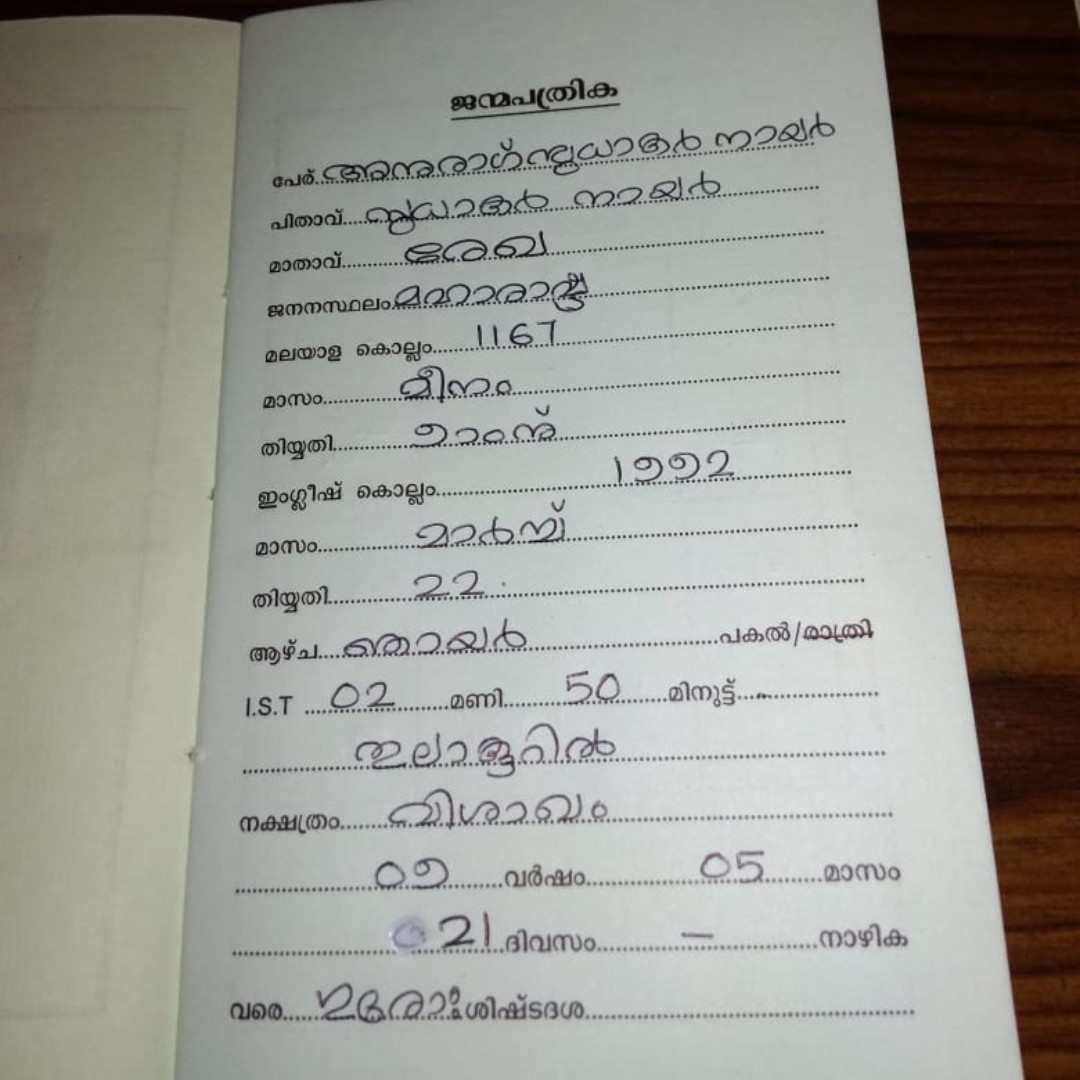 ജന്മപത്രിക
പേര്...അനുരാഗ് സുധാകർ നായർ
പിതാവ്...സുധാകർ നായർ
മാതാവ്...രേഖ
ജനനസ്ഥലം...മഹാരാഷ്ട്ര
മലയാള കൊല്ലം...1167
മാസം...മീനം
തിയ്യതി...9ാംനു്
ഇംഗ്ലീഷ് കൊല്ലം...1992
മാസം...മാർച്ച്
തിയ്യതി...22.
ആഴ്ച...ഞായർ...പകൽ/രാത്രി
I.S.T ...02...മണി...50...മിനുട്ട്...
നക്ഷത്രം...വിശാഖം
09...വർഷം...05...മാസം
21...ദിവസം...—...നാഴിക
വരെ...ശിഷ്ടദശ...